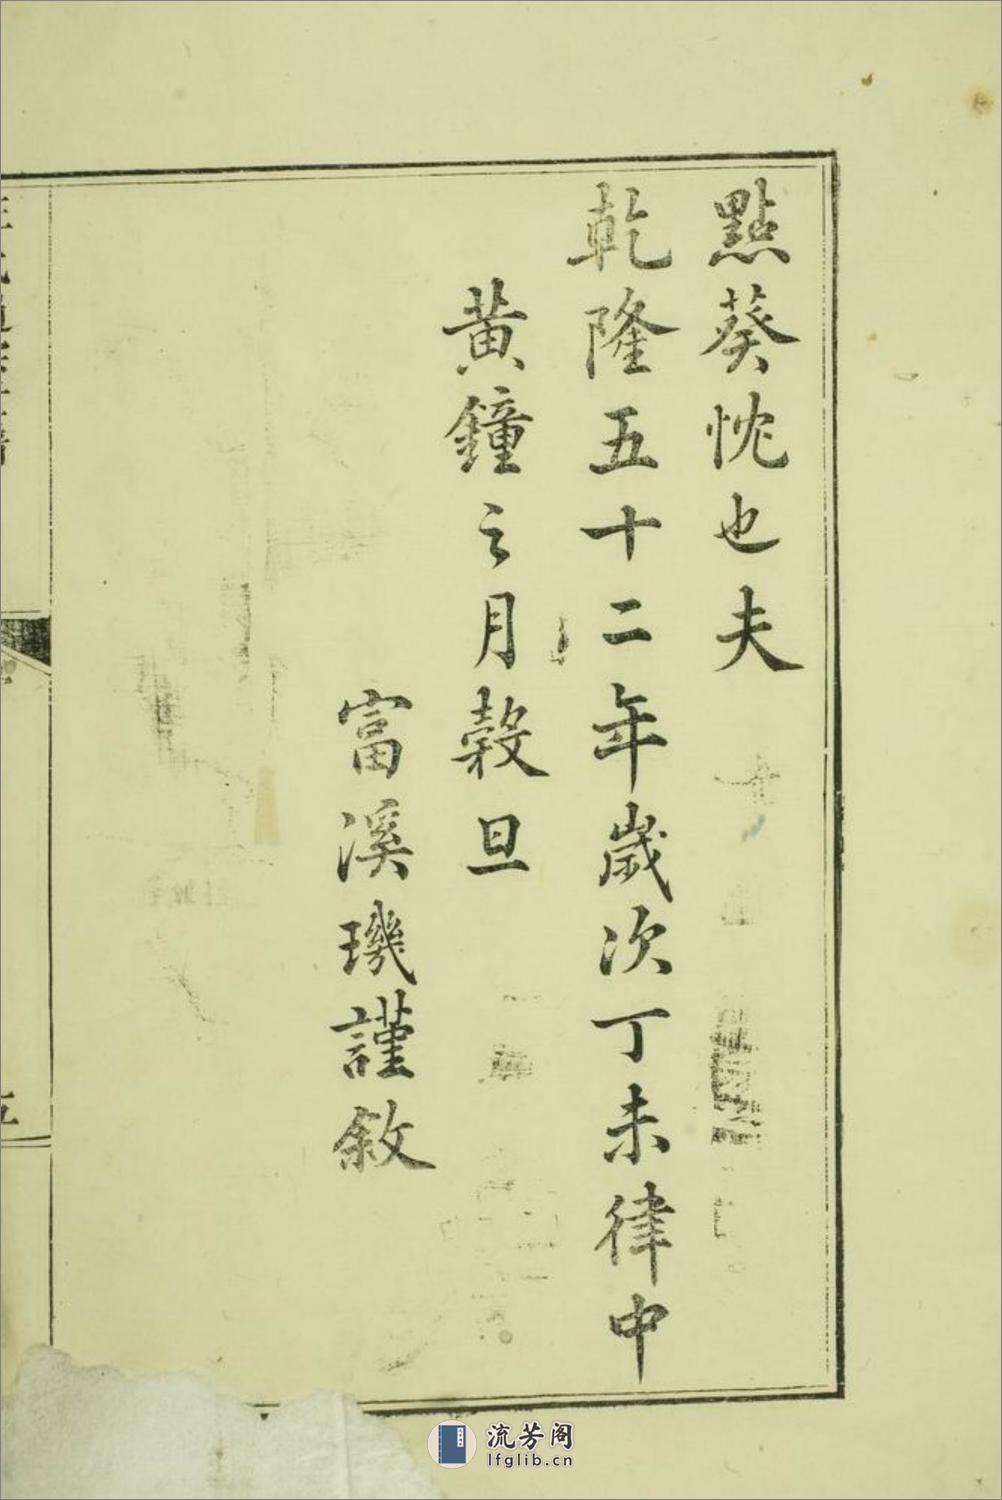 點葵忱也夫
乾隆五十二年歲次丁未律中
黃鐘之月穀旦
富溪璣謹敘
五
流芳阁
lfglib.cn